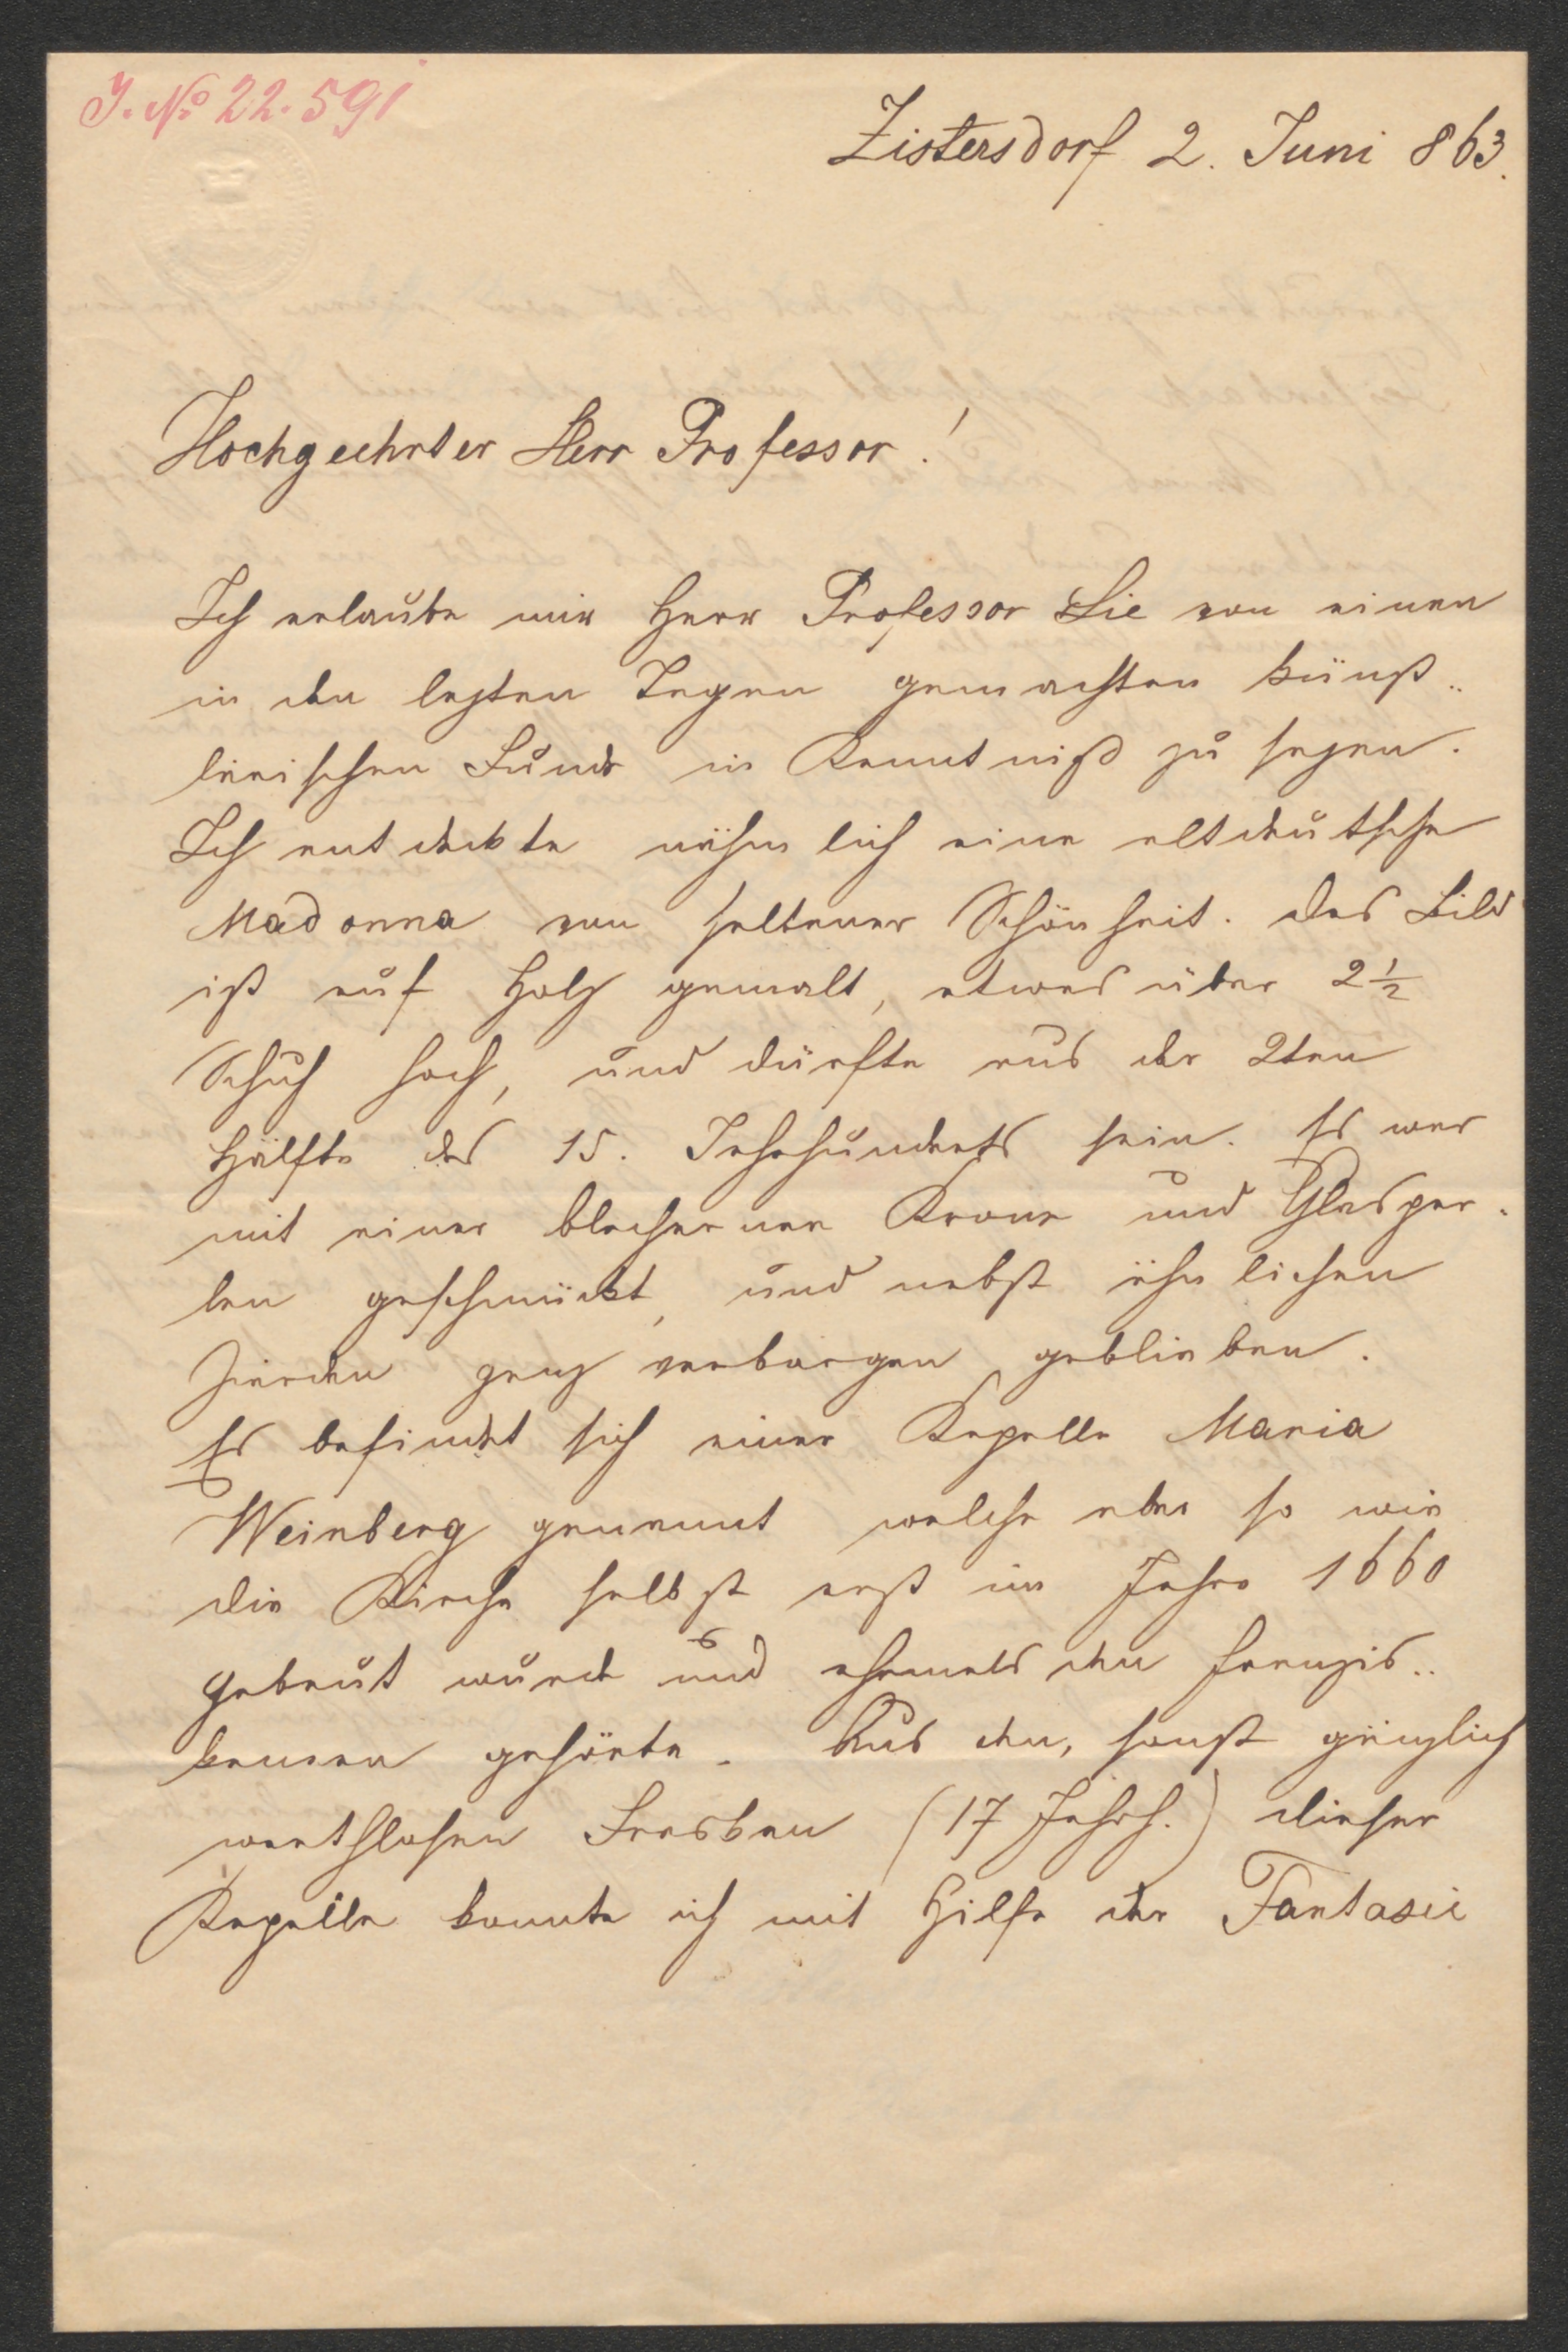 J. No 22.591
Zistersdorf 2. Juni 863.
Hochgeehrter Herr Professor!
Ich erlaube mir Herr Professor Sie von einen
in den letzten Tagen gemachten künst..
lerischen Funde in Kenntniß zu setzen.
Ich entdeckte nähmlich eine altdeutsche
Madonna von seltener Schönheit. Das Bild
ist auf Holz gemalt, etwas über 2½
Schuh hoch, und dürfte aus der 2ten
Hälfte des 15. Jahrhunderts sein. Es war
mit einer blechernen Krone und Glasper..
len geschmückt, und nebst ähnlichen
Zierden ganz verborgen geblieben.
Es befindet sich einer Kapelle Maria
Weinberg genannt welche aber so wie
die Kirche selbst erst im Jahre 1660
gebaut wurde und ehemals den Franzis..
kanern gehörte. Aus den, sonst gänzlich
werthlosen Fresken (17 Jahrh.) dieser
Kapelle konnte ich mit Hilfe der Fantasie